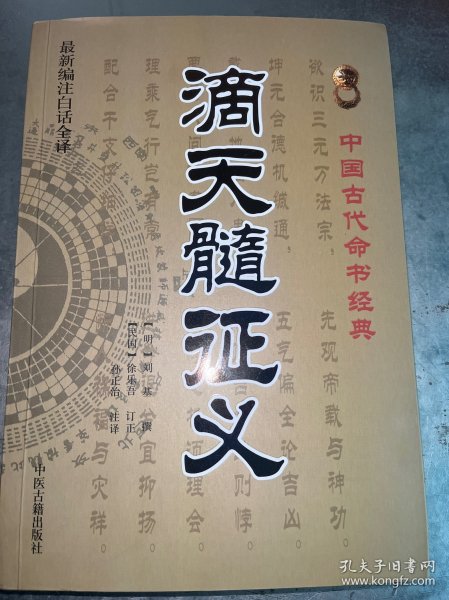 最新编注白话全译
中国古代命书经典
滴天髓征义
【明】刘基 撰
【民国】徐乐吾 订正
孙正治 注译
中医古籍出版社
欲识三元万法宗
先观帝载与神功。
坤元合德机缄通
五气偏全论吉凶。
则悖
理会。
理乘气行岂有常
宜抑扬。
配合干支仔细
祸福与灾祥。
孔夫子旧书网
www.kongfz.com